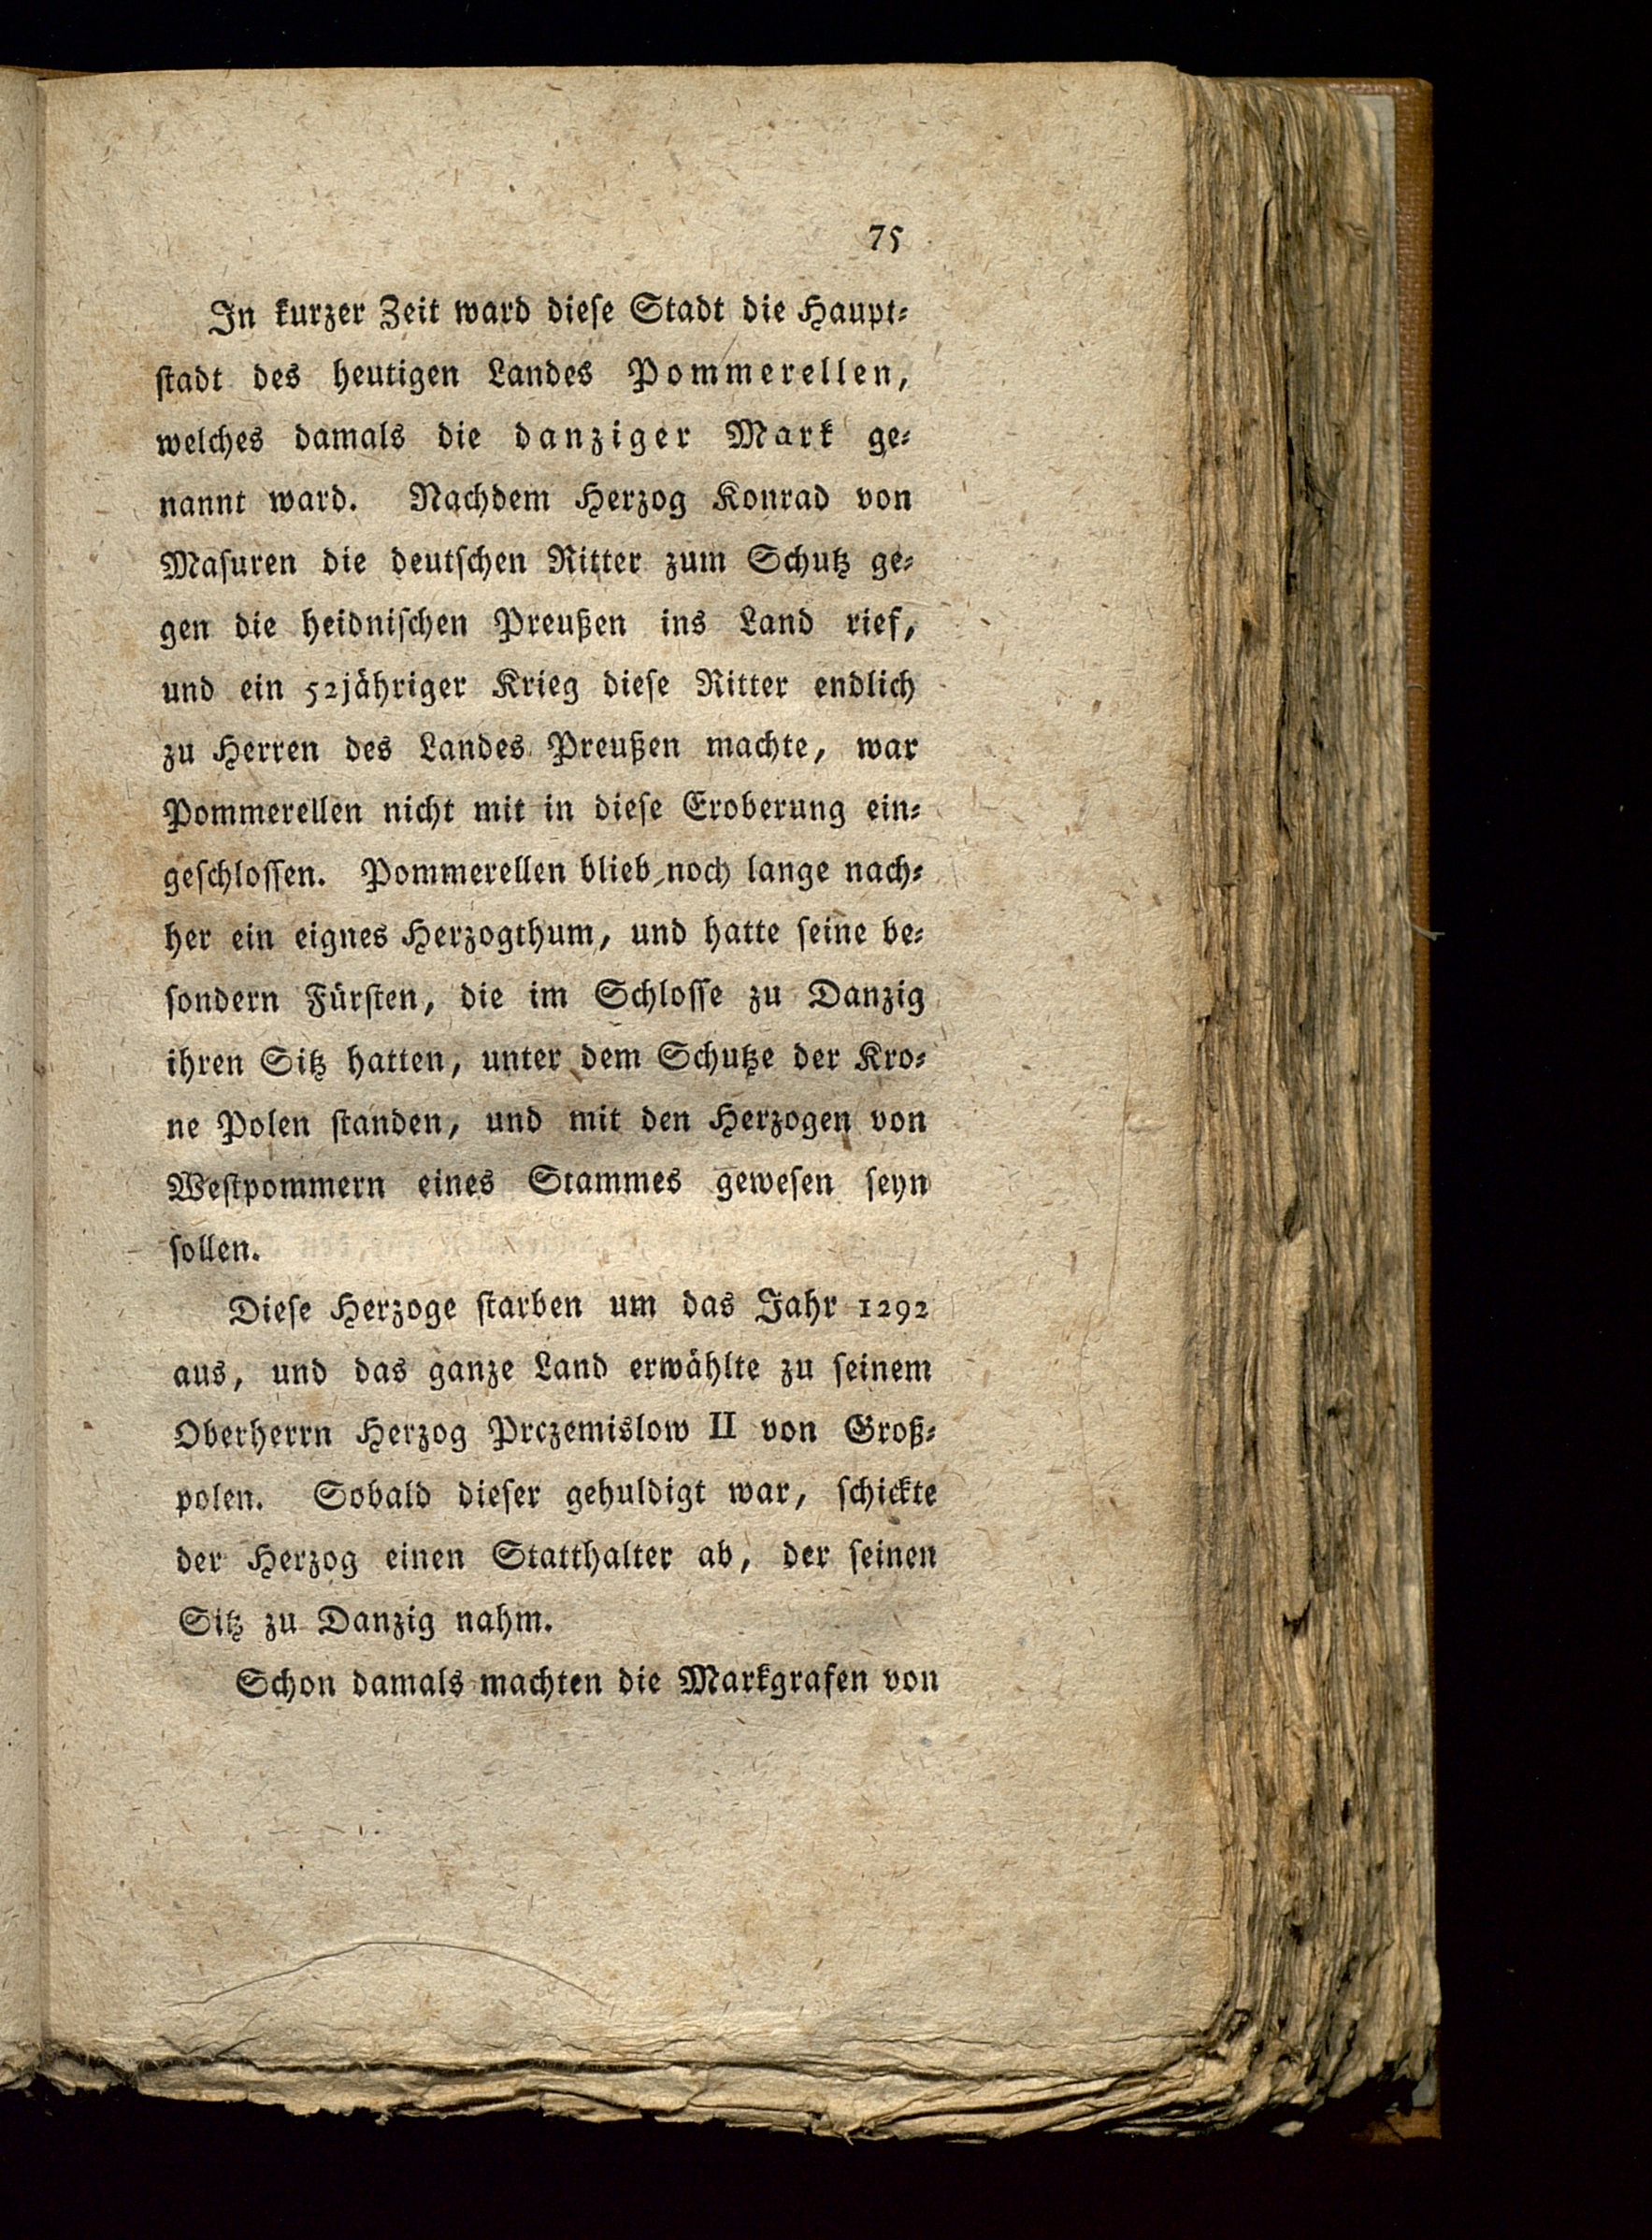 75
In kurzer Zeit ward dieſe Stadt die Haupt⸗
ſtadt des heutigen Landes Pommerellen,
welches damals die danziger Mark ge⸗
nannt ward. Nachdem Herzog Konrad von
Maſuren die deutſchen Ritter zum Schutz ge⸗
gen die heidniſchen Preußen ins Land rief,
und ein 52jähriger Krieg dieſe Ritter endlich
zu Herren des Landes Preußen machte, war
Pommerellen nicht mit in dieſe Eroberung ein⸗
geſchloſſen. Pommerellen blieb noch lange nach⸗
her ein eignes Herzogthum, und hatte ſeine be⸗
ſondern Fürſten, die im Schloſſe zu Danzig
ihren Sitz hatten, unter dem Schutze der Kro⸗
ne Polen ſtanden, und mit den Herzogen von
Weſtpommern eines Stammes geweſen ſeyn
ſollen.
Dieſe Herzoge ſtarben um das Jahr 1292
aus, und das ganze Land erwählte zu ſeinem
Oberherrn Herzog Prczemislow II von Groß⸗
polen. Sobald dieſer gehuldigt war, ſchickte
der Herzog einen Statthalter ab, der ſeinen
Sitz zu Danzig nahm.
Schon damals machten die Markgrafen von